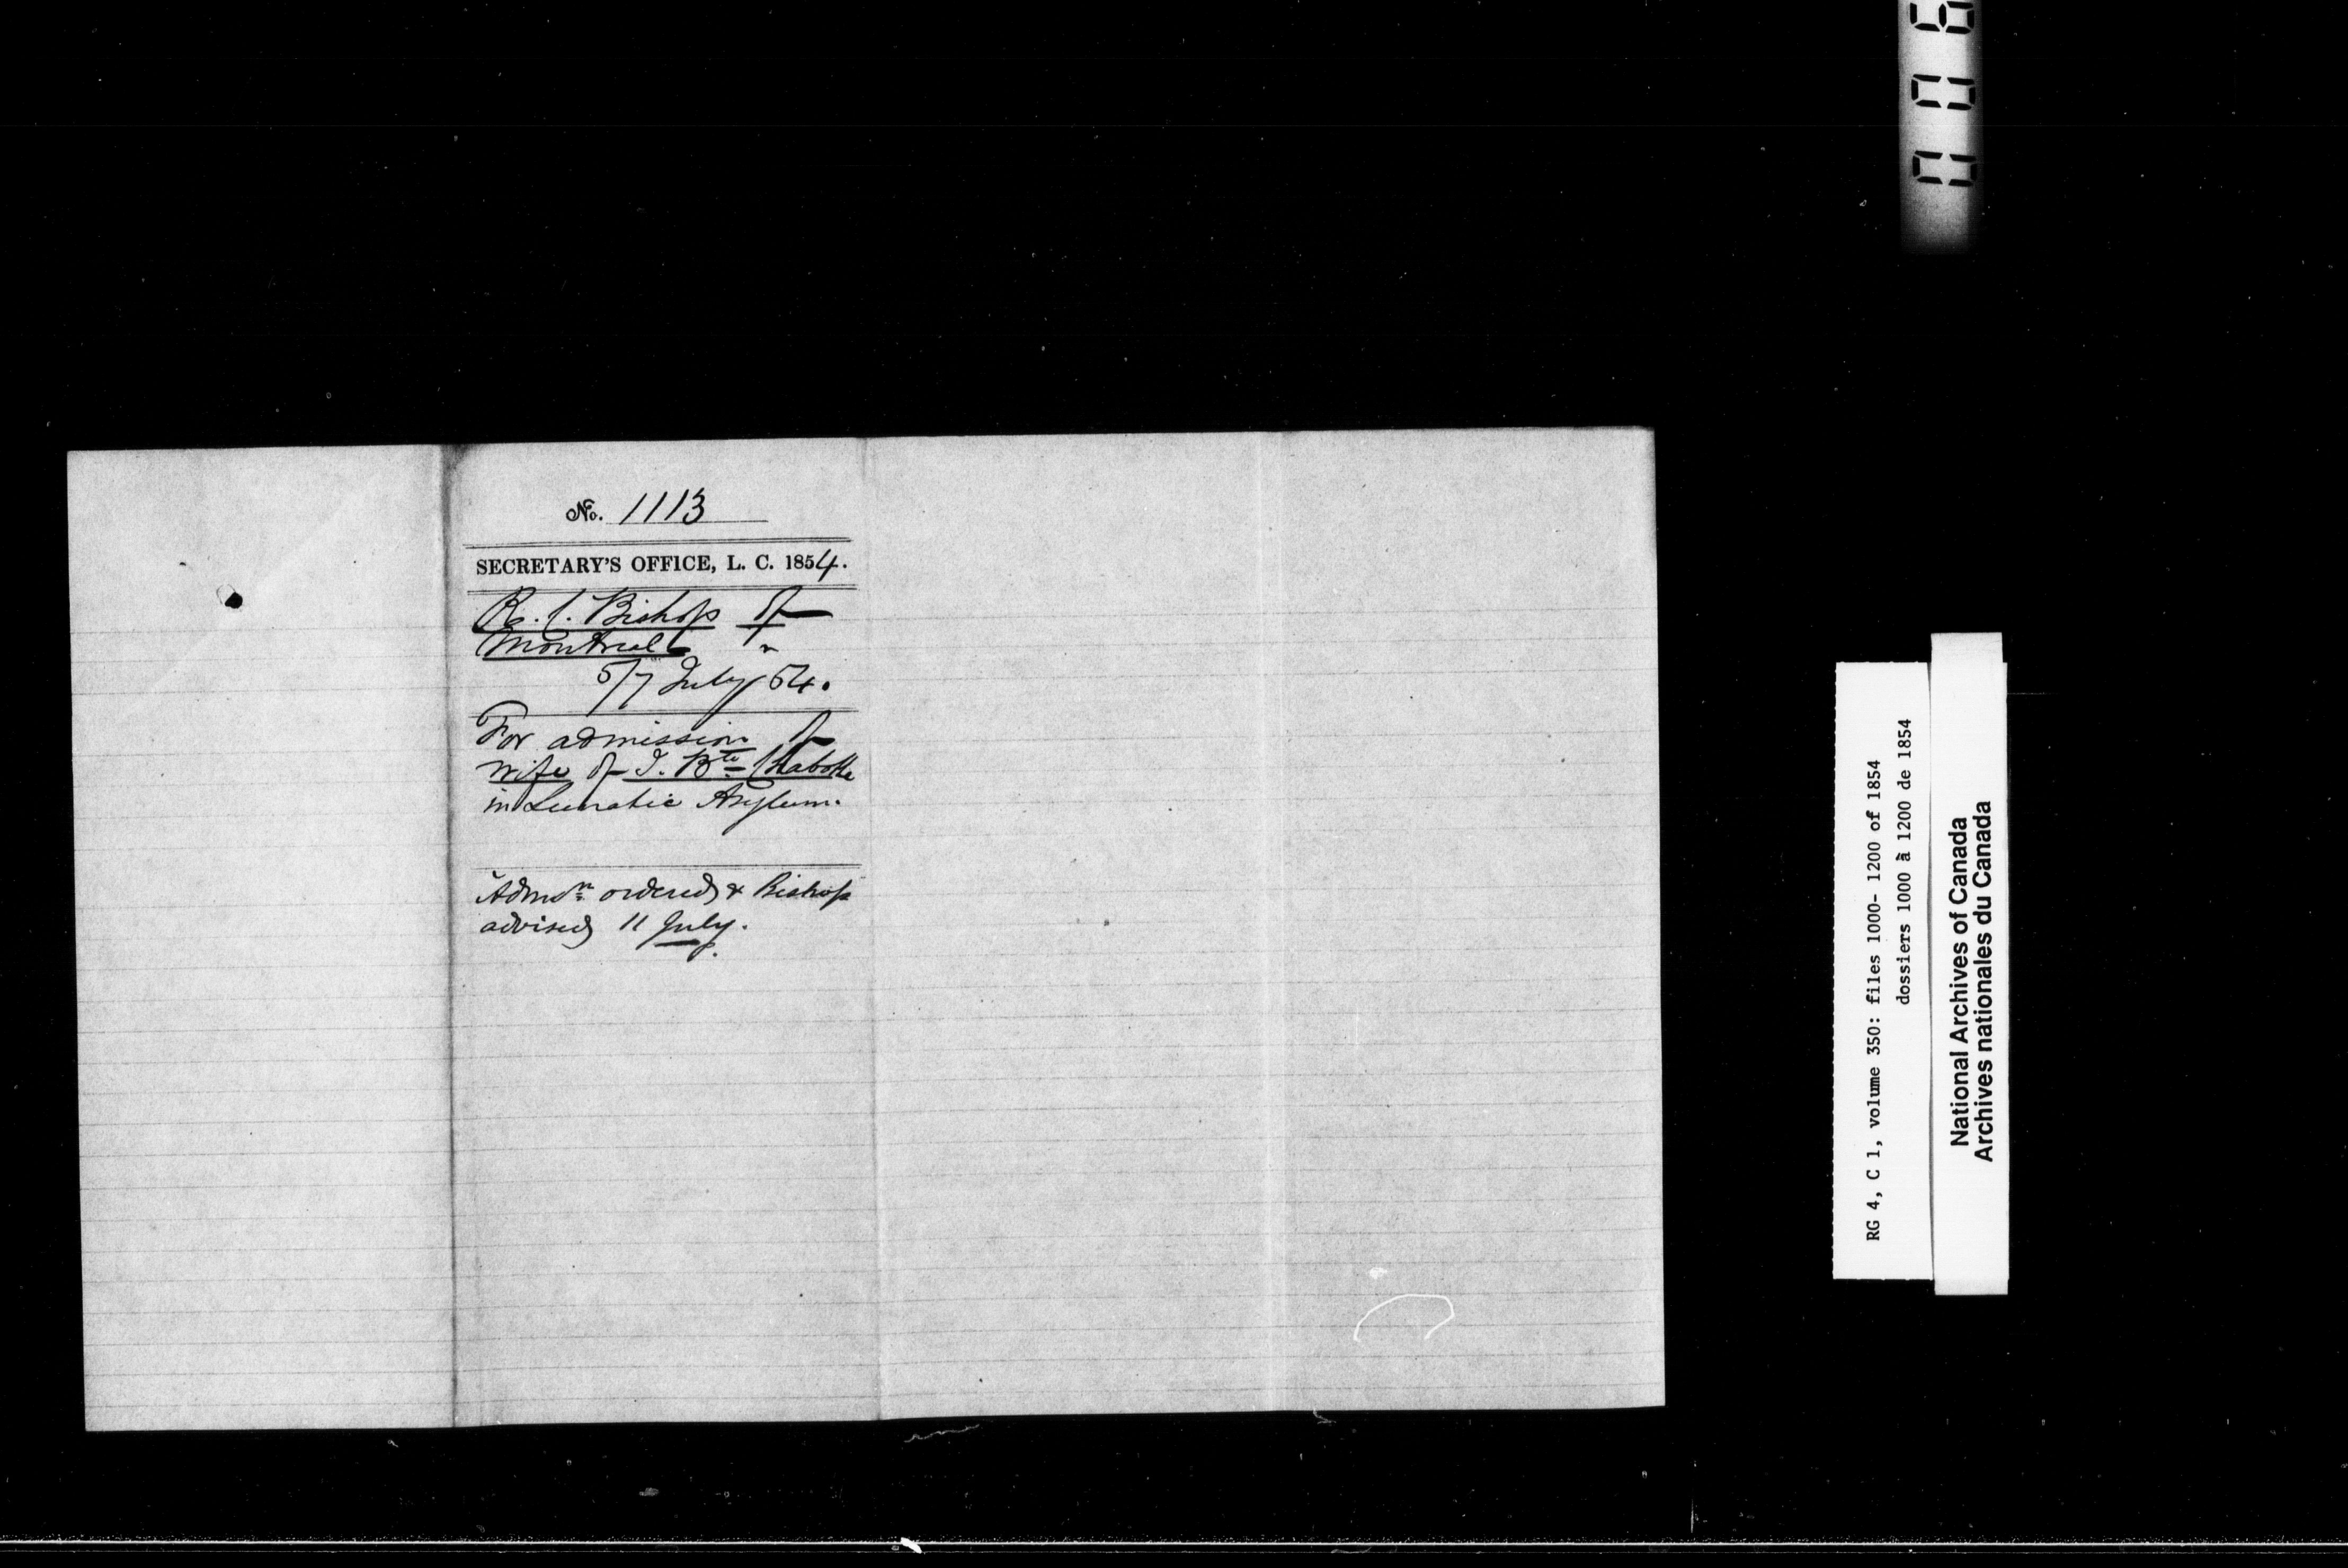 No. 1113
SECRETARY'S OFFICE, L. C. 1854.
R. C. Bishop of
Montreal
5/7 July 54.
For admission of
wife of J. Bte
in Lunatic Asylum.
Admon ordered & Bishop
advised 11 July.
RG 4, C 1, volume 350: files 1000- 1200 of 1854
dossiers 1000 à 1200 de 1854
National Archives of Canada
Archives nationales du Canada